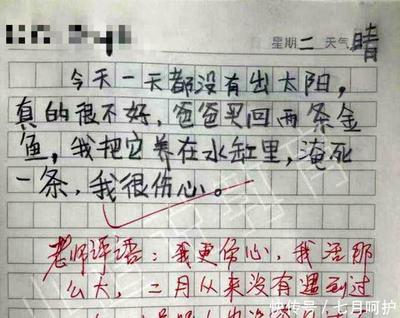 星期二 天气晴
今天一天都没有出太阳，
真的很不好，爸爸买回两条金
鱼，我把它养在水缸里，淹死
一条，我很伤心。
老师评语：我更伤心，我活那
么大，二月从来没有遇到过
快传号／七月呵护